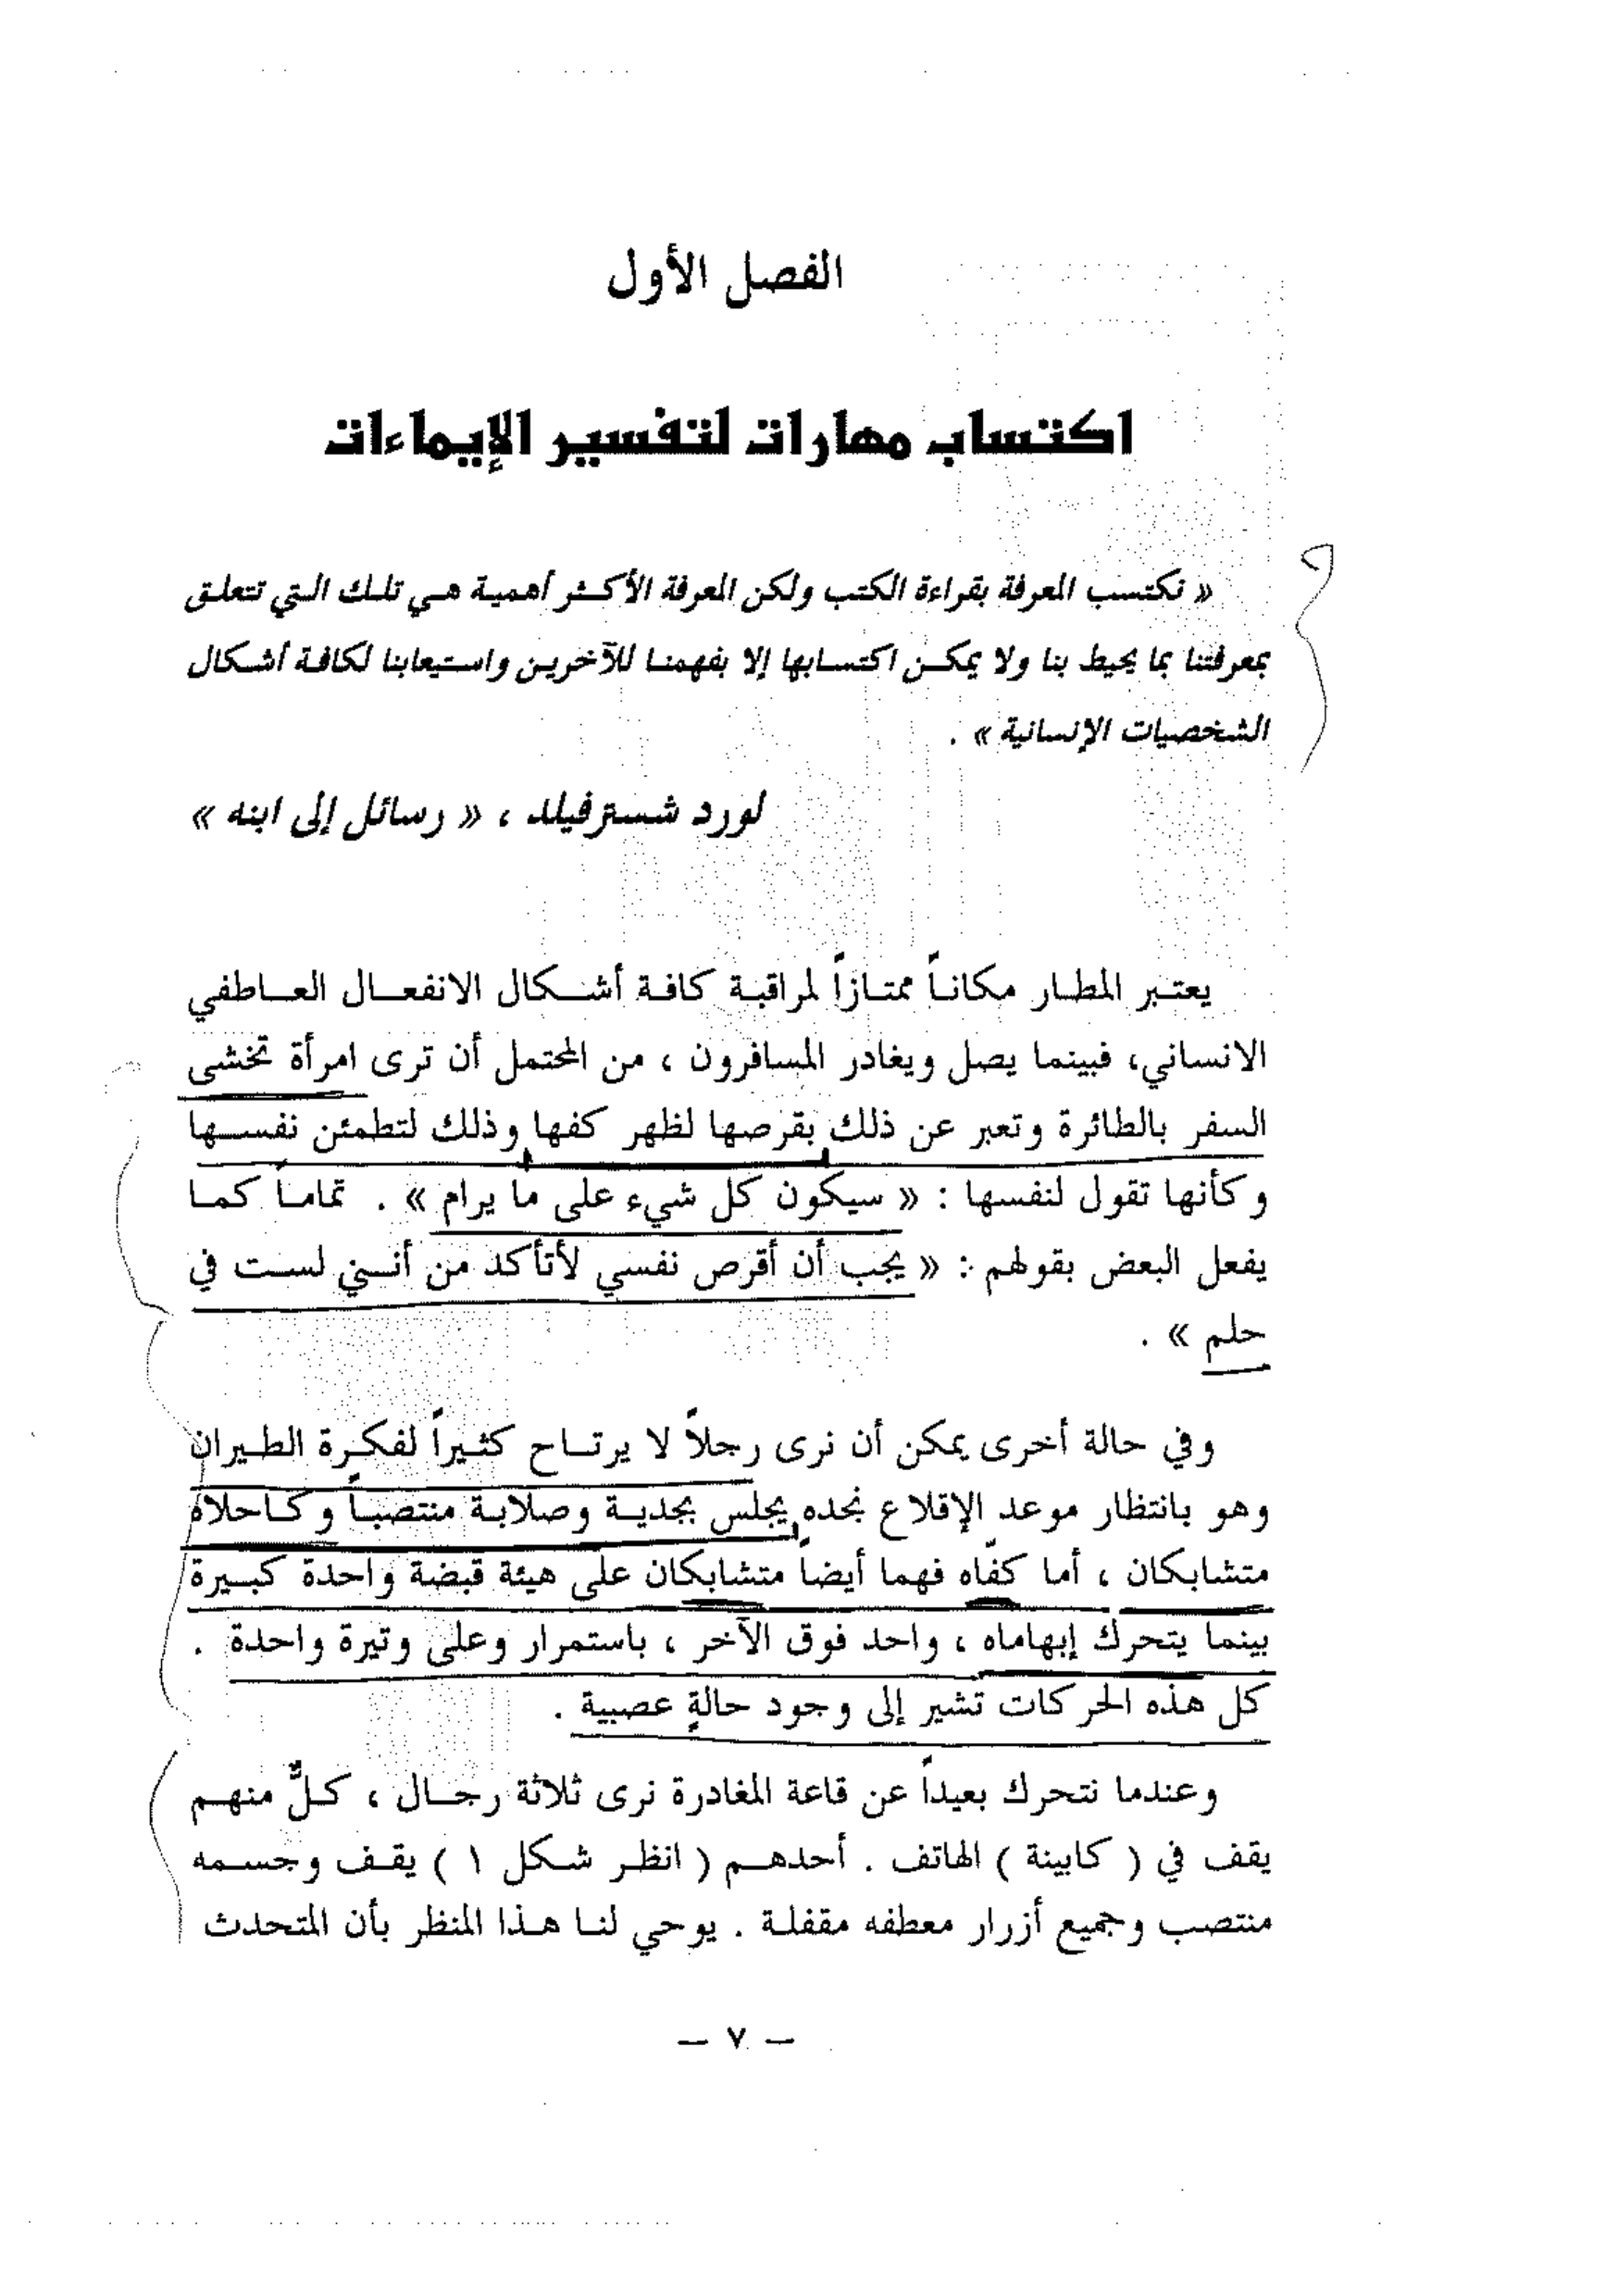 الفصل الأول
اكتساب مهارات لتفسير الإيماءات
« نكتسب المعرفة بقراءة الكتب ولكن المعرفة الأكثر أهمية هي تلك التي تتعلق
بمعرفتنا بما يحيط بنا ولا يمكن اكتسابها إلا بفهمنا للآخرين واستيعابنا لكافة أشكال
الشخصيات الإنسانية » .
لورد شسترفيلد ، « رسائل إلى ابنه »
يعتبر المطار مكاناً ممتازاً لمراقبة كافة أشكال الانفعال العاطفي
الانساني، فبينما يصل ويغادر المسافرون ، من المحتمل أن ترى امرأة تخشى
السفر بالطائرة وتعبر عن ذلك بقرصها لظهر كفها وذلك لتطمئن نفسها
وكأنها تقول لنفسها : « سيكون كل شيء على ما يرام » . تماماً كما
يفعل البعض بقولهم : « يجب أن أقرص نفسي لأتأكد من أنني لست في
حلم » .
وفي حالة أخرى يمكن أن نرى رجلاً لا يرتاح كثيراً لفكرة الطيران
وهو بانتظار موعد الإقلاع نجده يجلس بجدية وصلابة منتصباً وكاحلاه
متشابكان ، أما كفّاه فهما أيضاً متشابكان على هيئة قبضة واحدة كبيرة
بينما يتحرك إبهاماه ، واحد فوق الآخر ، باستمرار وعلى وتيرة واحدة .
كل هذه الحركات تشير إلى وجود حالةٍ عصبية .
وعندما نتحرك بعيداً عن قاعة المغادرة نرى ثلاثة رجال ، كلٌّ منهم
يقف في ( كابينة ) الهاتف . أحدهم ( انظر شكل ١ ) يقف وجسمه
منتصب وجميع أزرار معطفه مقفلة . يوحي لنا هذا المنظر بأن المتحدث
– ٧ –